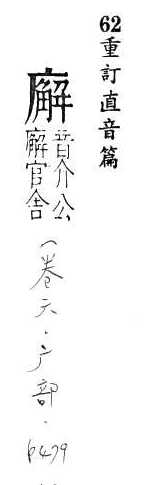 62重訂直音篇
廨音介公廨官舍
(卷六·广部·6479